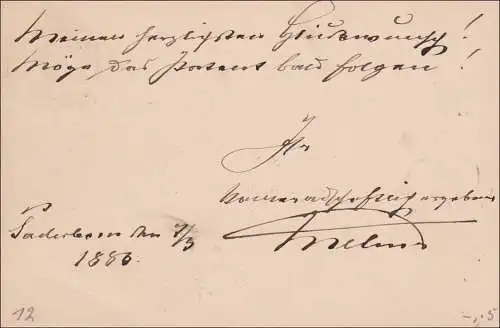 Meinen herzlichsten Glückwunsch!
Möge das Patent bald folgen!
Ihr
kameradschaftlich ergebener
Paderborn den 7/3
1886.
12
-,5